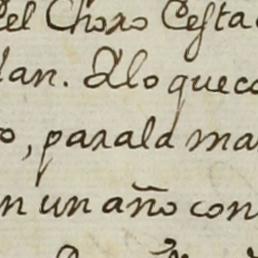 el Choro Cesta
lan. A lo que co
o, para la ma
n un año con